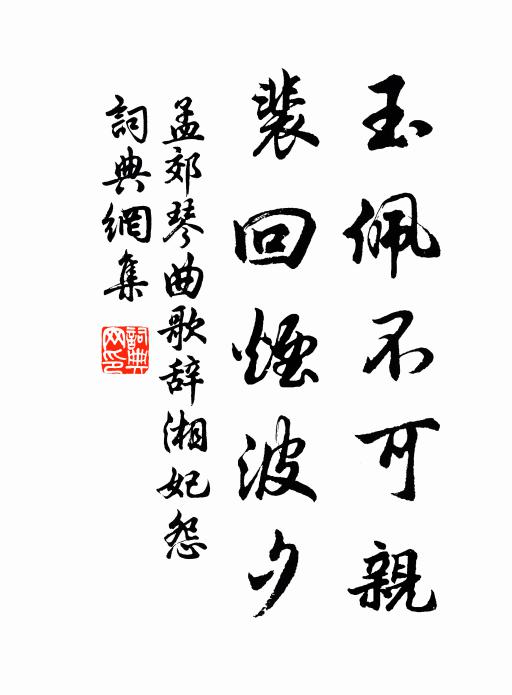 玉佩不可親
裴回煙波夕
孟郊琴曲歌辞湘妃怨
詞典網集
詞典网印